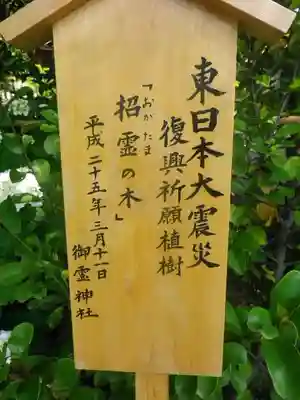 東日本大震災
復興祈願植樹
「おがたま
招霊の木」
平成二十五年三月十一日
御霊神社